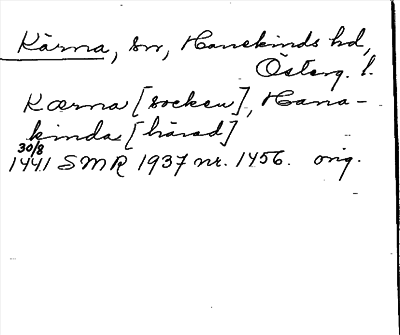 Kärna, sn, Hanekinds hd,
Österg. l.
Kærna [socken], Hana-
kinda [härad]
30/8
1441 SMR 1937 nr. 1456. orig.